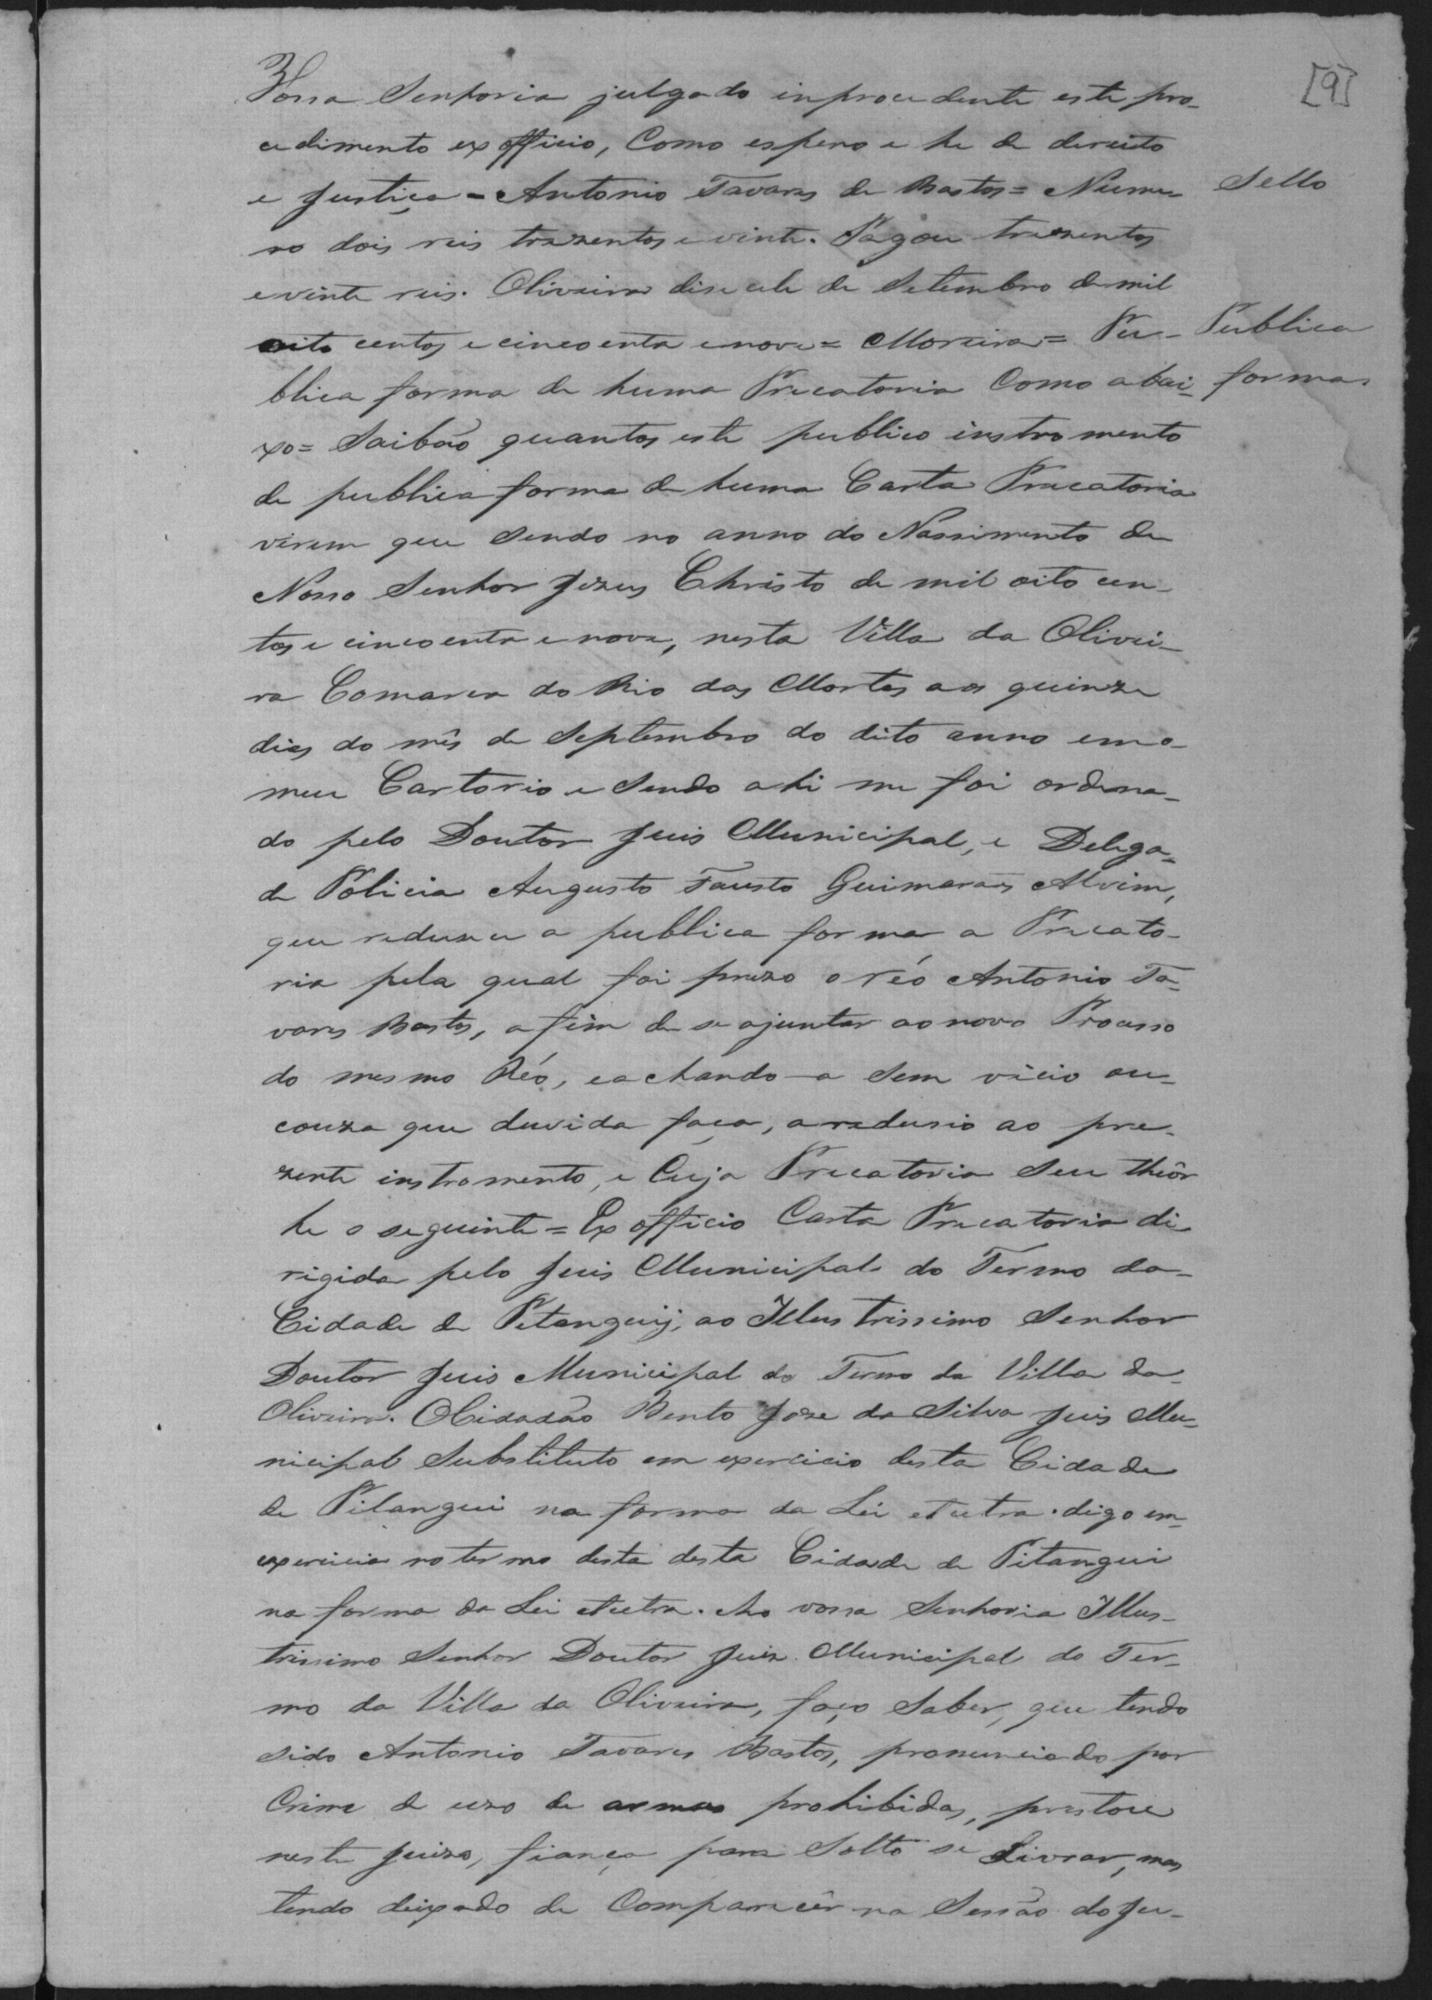 [9]
Vossa Senhoria julgado improcedente este pro-
cedimento ex officio, Como espero e he de direito
e Justiça = Antonio Tavares de Bastos = Nume- Sello
ro dois reis trezentos e vinte. Pagou trezentos
e vinte reis. Oliveira disecete de Setembro de mil
oito centos e cincoenta e nove = Moreira = Pu- Publica
blica forma de huma Precatoria Como abai- forma
xo = Saibão quantos este publico instromento
de publica forma de huma Carta Precatoria
virem que sendo no anno do Nassimento de
Nosso Senhor Jezus Christo de mil oito cen-
tos e cincoenta e nove, nesta Villa da Olivei-
ra Comarca do Rio das Mortes aos quinze
dias do mês de Septembro do dito anno em o
meu Cartorio e sendo ahi me foi ordena-
do pelo Doutor Juis Municipal, e Delega-
de Policia Augusto Fausto Guimarães Alvim,
que reduzice a publica forma a Precato-
ria pela qual foi prezo o réo Antonio Ta-
vares Bastos, afim de se ajuntar ao novo Processo
do mesmo Réo, e achando-a sem vicio ou
couza que duvida faça, a redusio ao pre-
zente instromento, e Cuja Precatoria seu theôr
he o seguinte = Ex officio Carta Precatoria di-
rigida pelo Juis Municipal do Termo da
Cidade de Pitanguij, ao Illustrissimo Senhor
Doutor Juis Municipal do Termo da Villa da
Oliveira. O Cidadão Bento Joze da Silva Juis Mu-
nicipal Substituto em exercicio desta Cidade
de Pitangui na forma da Lei etcetra. digo em
exercicio no termo desta desta Cidade de Pitangui
na forma da Lei etcetra. Ao vossa Senhoria Illus-
trissimo Senhor Doutor Juiz Municipal do Ter-
mo da Villa da Oliveira, faço Saber, que tendo
sido Antonio Tavares Bastos, pronunciado por
Crime de uzo de armas prohibidas, prestou
neste Juizo, fiança para Solto se Livrar, mas
tendo deixado de Comparecêr na Sessão do Ju-